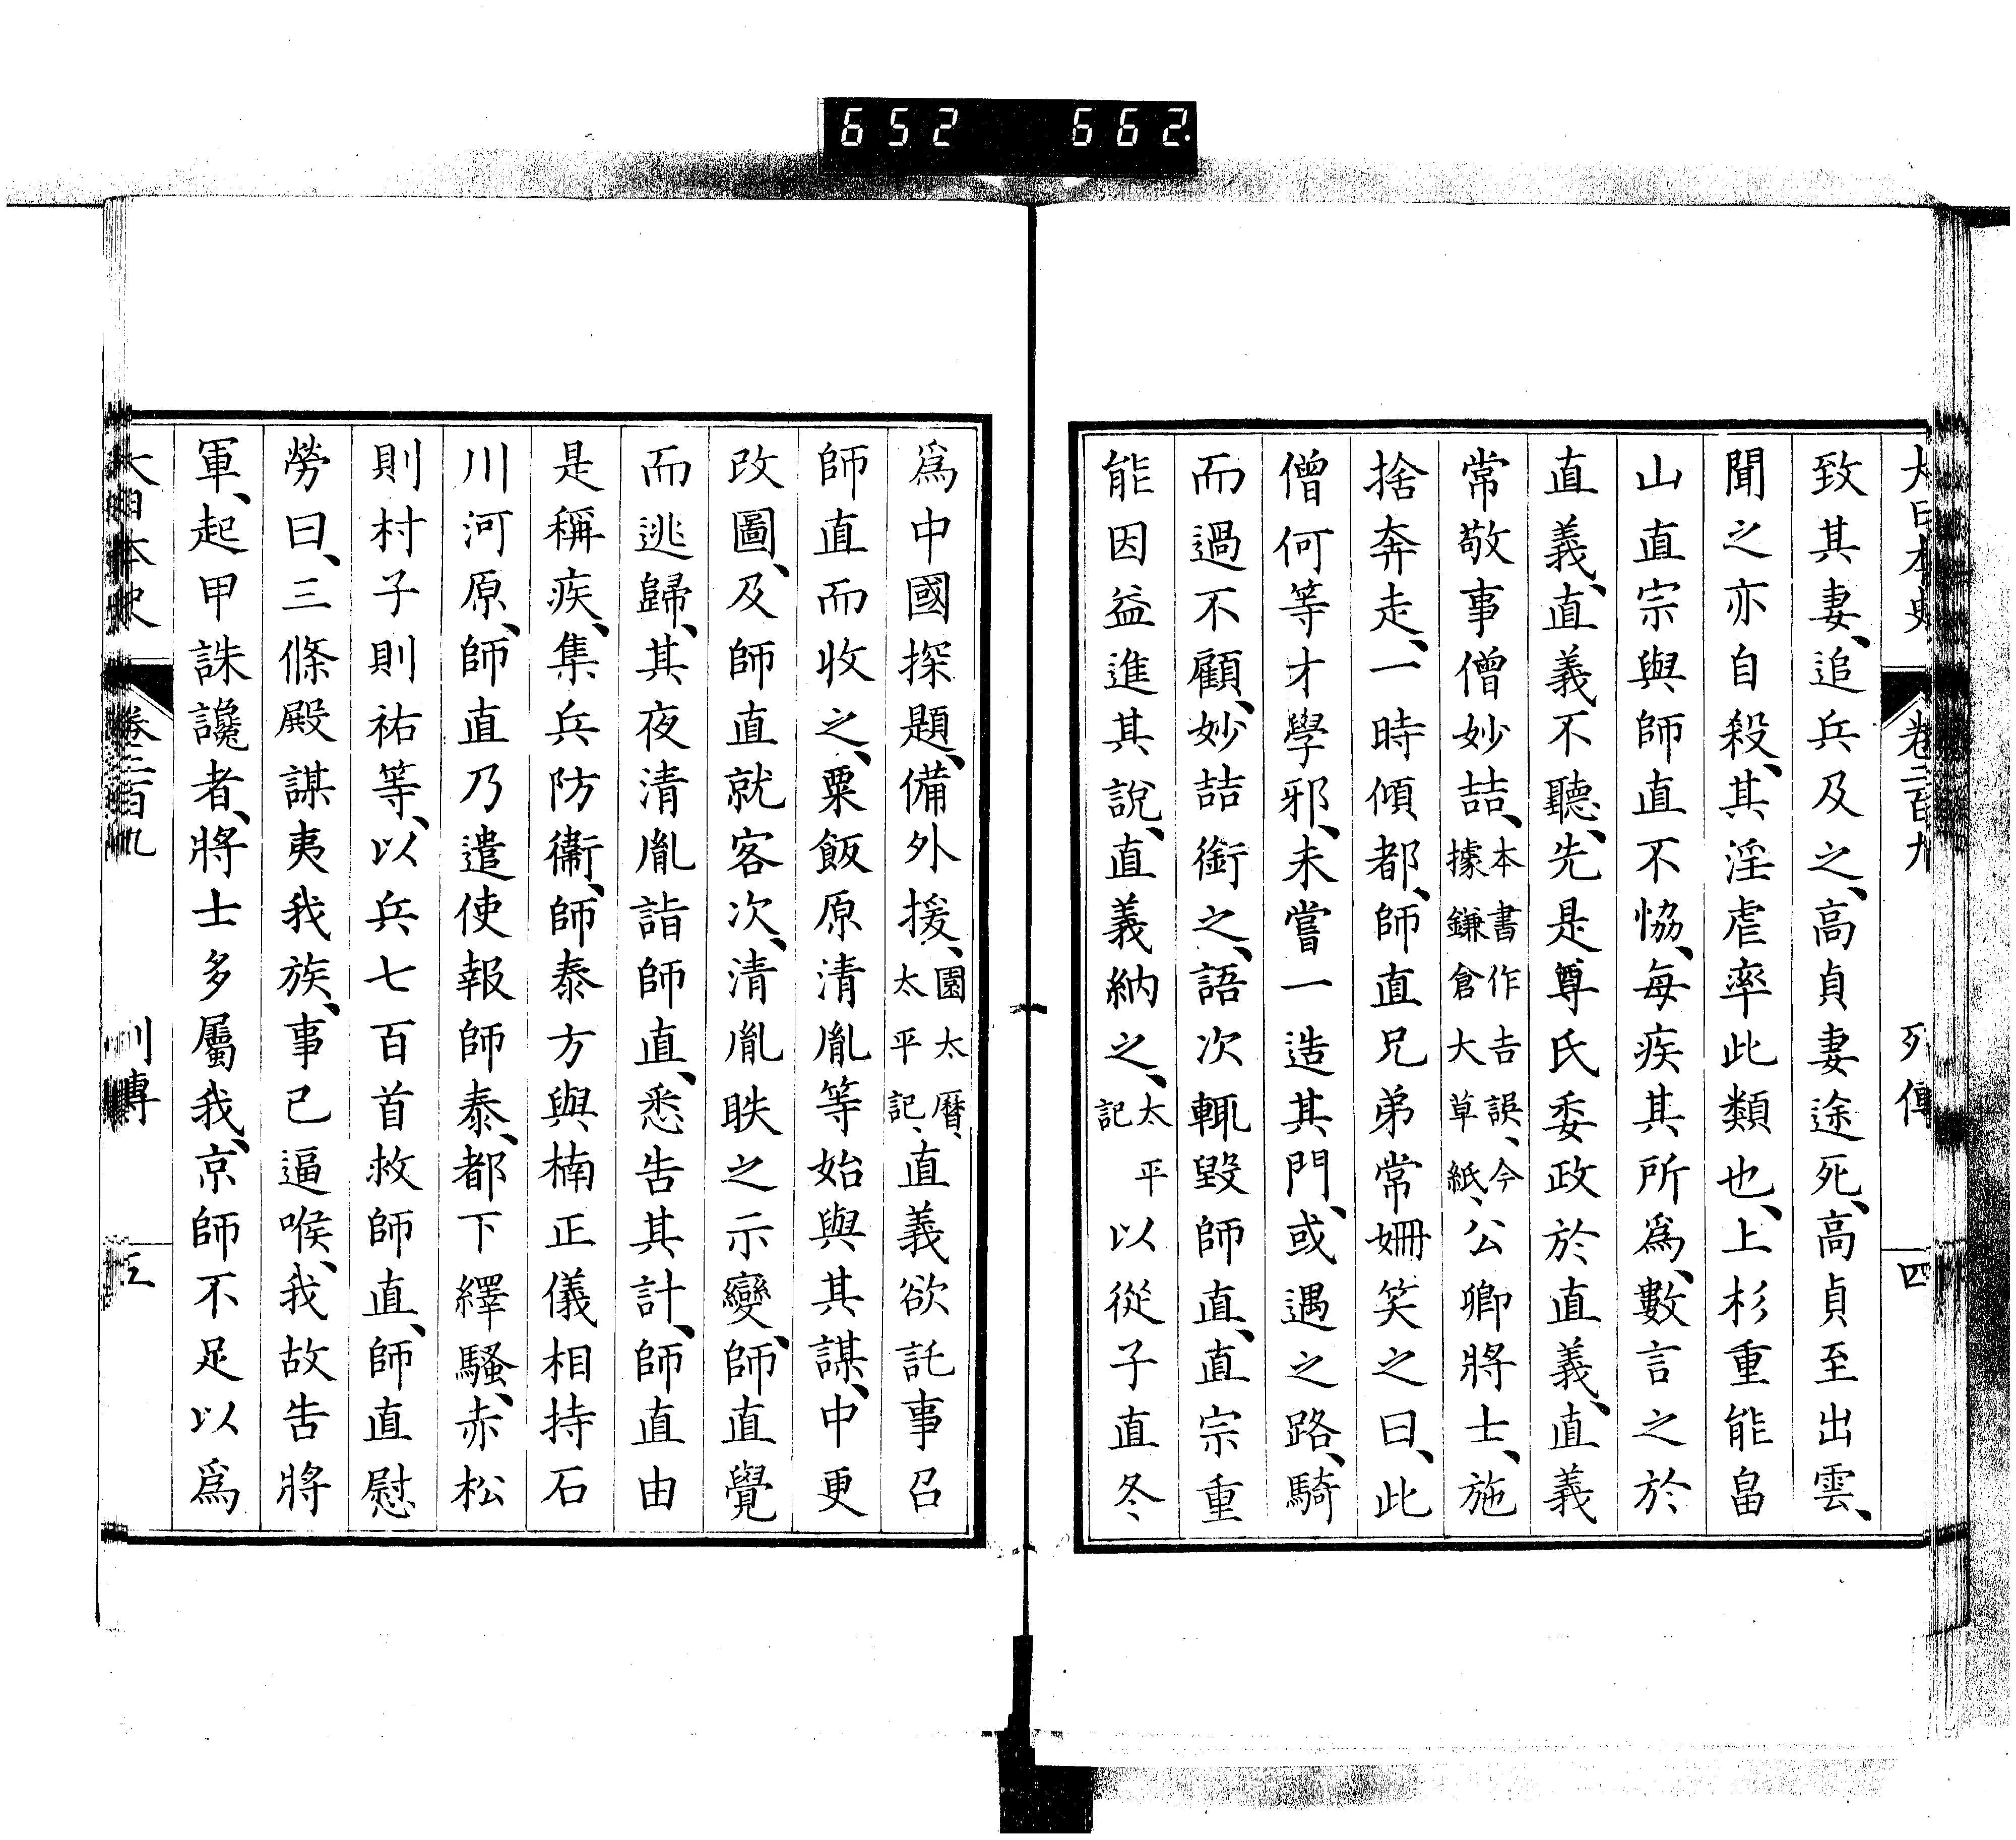 652 662
大日本史 卷二百九 列傳 四
致其妻、追兵及之、高貞妻途死、高貞至出雲、
聞之亦自殺、其淫虐率此類也、上杉重能畠
山直宗與師直不恊、每疾其所爲、數言之於
直義、直義不聽、先是尊氏委政於直義、直義
常敬事僧妙喆、本書作吉誤、今據鎌倉大草紙、公卿將士、施
捨奔走、一時傾都、師直兄弟常姍笑之曰、此
僧何等才學邪、未嘗一造其門、或遇之路、騎
而過不顧、妙喆銜之、語次輒毀師直、直宗重
能因益進其說、直義納之、太平記以從子直冬
爲中國探題、備外援、園太曆、太平記、直義欲託事召
師直而收之、粟飯原清胤等始與其謀、中更
改圖、及師直就客次、清胤眣之示變、師直覺
而逃歸、其夜清胤詣師直、悉告其計、師直由
是稱疾、集兵防衞、師泰方與楠正儀相持石
川河原、師直乃遣使報師泰、都下繹騷、赤松
則村子則祐等、以兵七百首救師直、師直慰
勞曰、三條殿謀夷我族、事已逼喉、我故告將
軍、起甲誅讒者、將士多屬我、京師不足以爲
大日本史 卷二百九 列傳 五